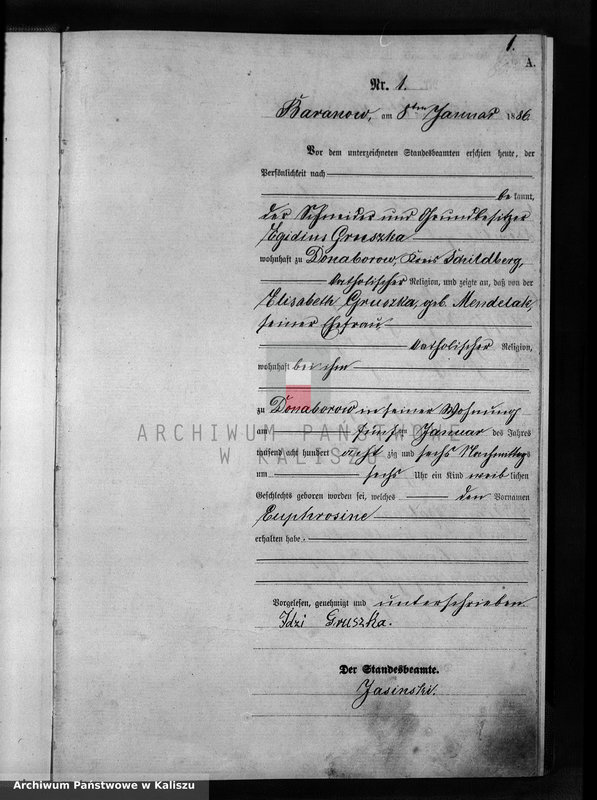 1.
A.
Nr. 1.
Baranow, am 8ten Januar 1886
Vor dem unterzeichneten Standesbeamten erschien heute, der
Persönlichkeit nach
be kannt,
der Schneider und Grundbesitzer
Egidius Gruszka
wohnhaft zu Donaborow, Kreis Schildberg,
katholischer Religion, und zeigte an, daß von der
Elisabeth Gruszka, geb. Mendelak,
seiner Ehefrau
katholischer Religion,
wohnhaft bei ihm
zu Donaborow in seiner Wohnung
am fünften Januar des Jahres
tausend acht hundert acht zig und sechs Nachmittags
um sechs Uhr ein Kind weib lichen
Geschlechts geboren worden sei, welches den Vornamen
Euphrosine
erhalten habe.
Vorgelesen, genehmigt und unterschrieben
Idzi Gruszka.
Der Standesbeamte.
Jasinski.
ARCHIWUM PAŃSTWOWE
W KALISZU
Archiwum Państwowe w Kaliszu